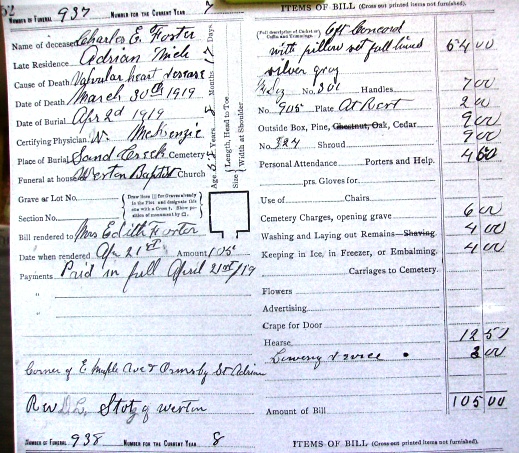 NUMBER OF FUNERAL 937 NUMBER FOR THE CURRENT YEAR 7
Name of deceased Charles E. Foster
Late Residence Adrian Mich
Cause of Death Valvular heart disease
Date of Death March 30th 1919
Date of Burial Apr 2d 1919
Certifying Physician W. McKenzie
Place of Burial Sand Creek Cemetery
Funeral at house Weston Baptist Church
Grave or Lot No.
Section No.
Draw lines for Graves already in the Plot and designate this one with a Cross †. Show position of monument by □.
Bill rendered to Mrs Edith Foster
Date when rendered Apr 21st Amount 105
Payments Paid in full April 21st/19
"
"
Corner of E Maple Ave & Ormsby St Adrian
Rev D.L. Stotz of Weston
Age Years Months Days
Size Length, Head to Toe Width at Shoulder
ITEMS OF BILL (Cross out printed items not furnished).
(Full description of Casket or Coffin and Trimmings. 6ft Concord
with pillow set full lined 54 00
silver grey
No. 301 Handles. 7 00
No. 905 Plate At Rest 2 00
Outside Box, Pine, Chestnut, Oak, Cedar 9 00
No. 324 Shroud 9 00
Personal Attendance Porters and Help. 4 50
prs. Gloves for
Use of Chairs
Cemetery Charges, opening grave 6 00
Washing and Laying out Remains—Shaving 4 00
Keeping in Ice, in Freezer, or Embalming. 4 00
Carriages to Cemetery.
Flowers
Advertising
Crape for Door
Hearse 12 50
Lowering device 3 00
Amount of Bill 105 00
NUMBER OF FUNERAL 938 NUMBER FOR THE CURRENT YEAR 8
ITEMS OF BILL (Cross out printed items not furnished).